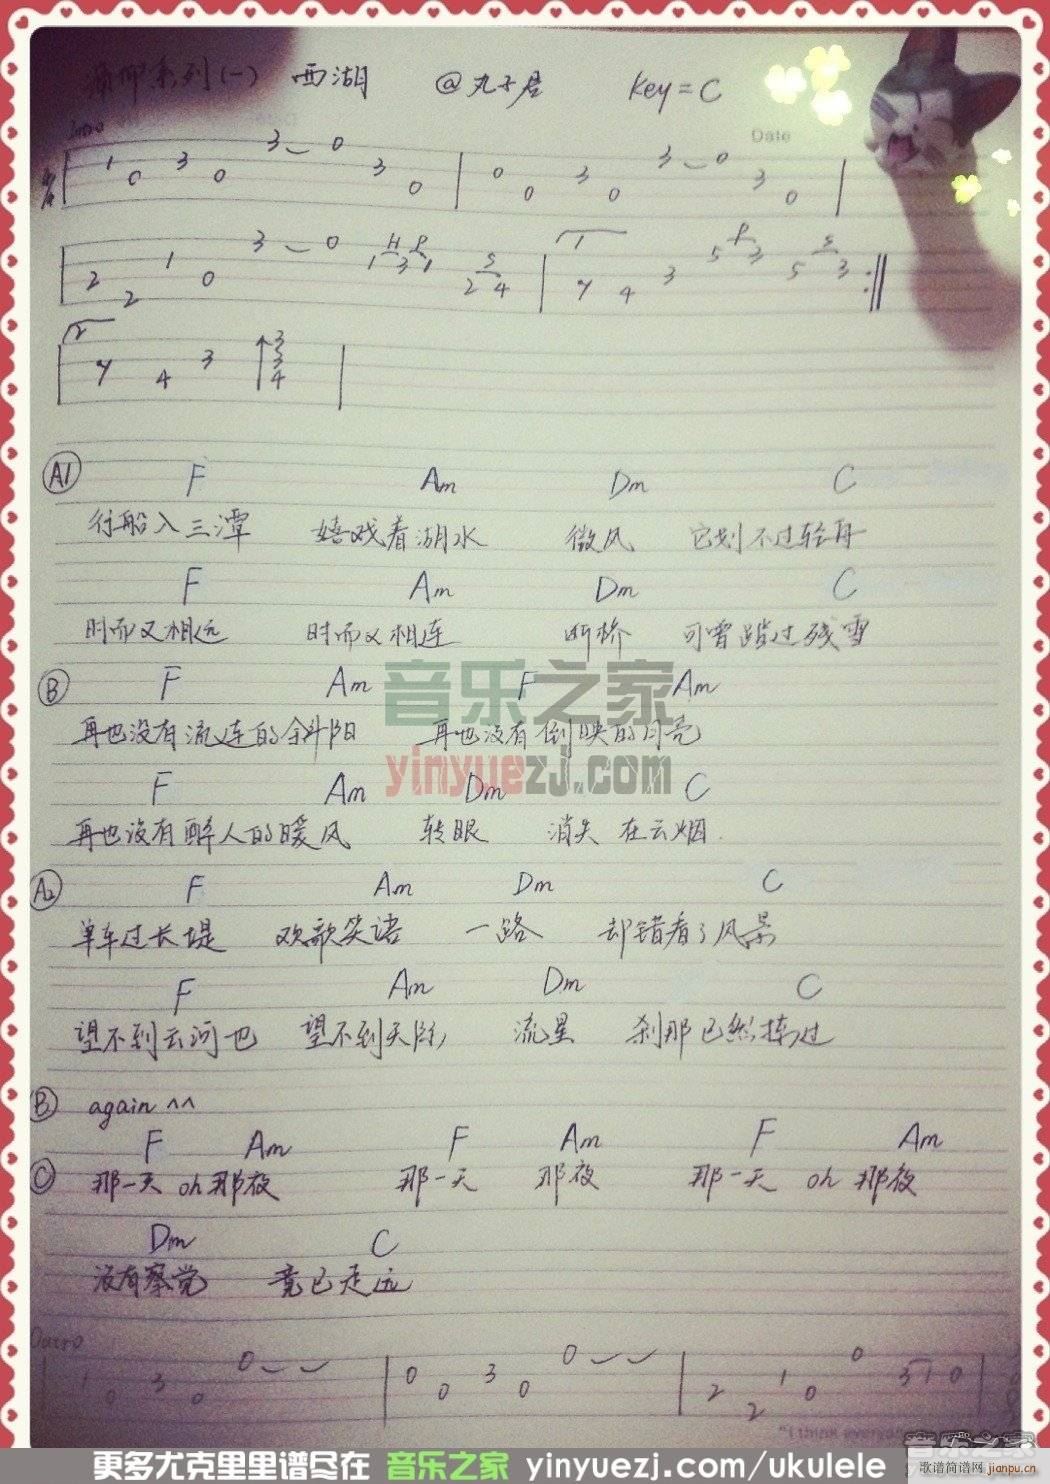 系列(一) 西湖 @丸子君 Key=C
Intro
Date
4/4 1 0 3 0 3 0 3 0 0 0 3 0 3 0 3 0
2 2 1 0 3 0 H P 1 3 1 S 2 4 1 7 4 3 5 P 3 S 5 3
2 7 4 3 3 3 4
A1 F Am Dm C
行船入三潭 嬉戏着湖水 微风 它划不过轻舟
F Am Dm C
时而又相远 时而又相连 断桥 可曾踏过残雪
B F Am F Am
再也没有流连的斜阳 再也没有倒映的月亮
音乐之家
yinyuezj.com
F Am Dm C
再也没有醉人的暖风 转眼 消失 在云烟.
A2 F Am Dm C
单车过长堤 欢歌笑语 一路 却错看了风景
F Am Dm C
望不到云河也 望不到天际 流星 刹那已然掠过
B again ^^
F Am F Am F Am
C 那一天 oh 那夜 那一天 那夜 那一天 oh 那夜
Dm C
没有察觉 竟已走远
Outro
1 0 3 0 0 0 0 3 0 0 2 2 1 0 0 3 1 0
"I think every
音乐之家
更多尤克里里谱尽在 音乐之家 yinyuezj.com/ukulele
歌谱简谱网
jianpu.cn